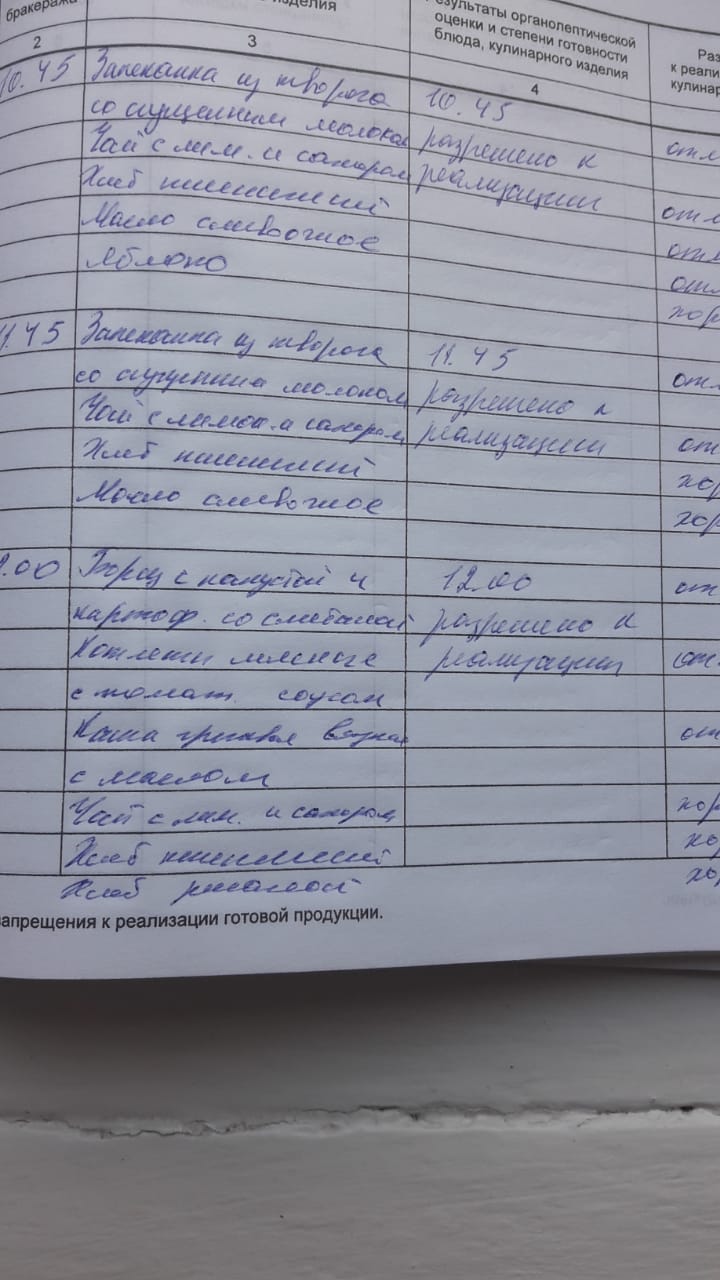 бракеража
изделия
результаты органолептической
оценки и степени готовности
блюда, кулинарного изделия
Раз
к реали
кулинар
2 3 4
10.45 Запеканка из творога 10.45
со сгущенным молоком разрешено к отл
Чай с лим. и сахаром реализации
Хлеб пшеничный отл
Масло сливочное отл
Яблоко отл
хор
11.45 Запеканка из творога 11.45 отл
со сгущенным молоком разрешено к
Чай с лимон. и сахаром реализации от
Хлеб пшеничный хор
Масло сливочное хор
2.00 Борщ с капустой и 12.00 от
картоф. со сметаной разрешено к
Котлеты мясные реализации от
с томат. соусом
Каша гречневая вязкая от
с маслом
Чай с лим. и сахаром хор
Хлеб пшеничный хо
Хлеб ржаной хо
запрещения к реализации готовой продукции.